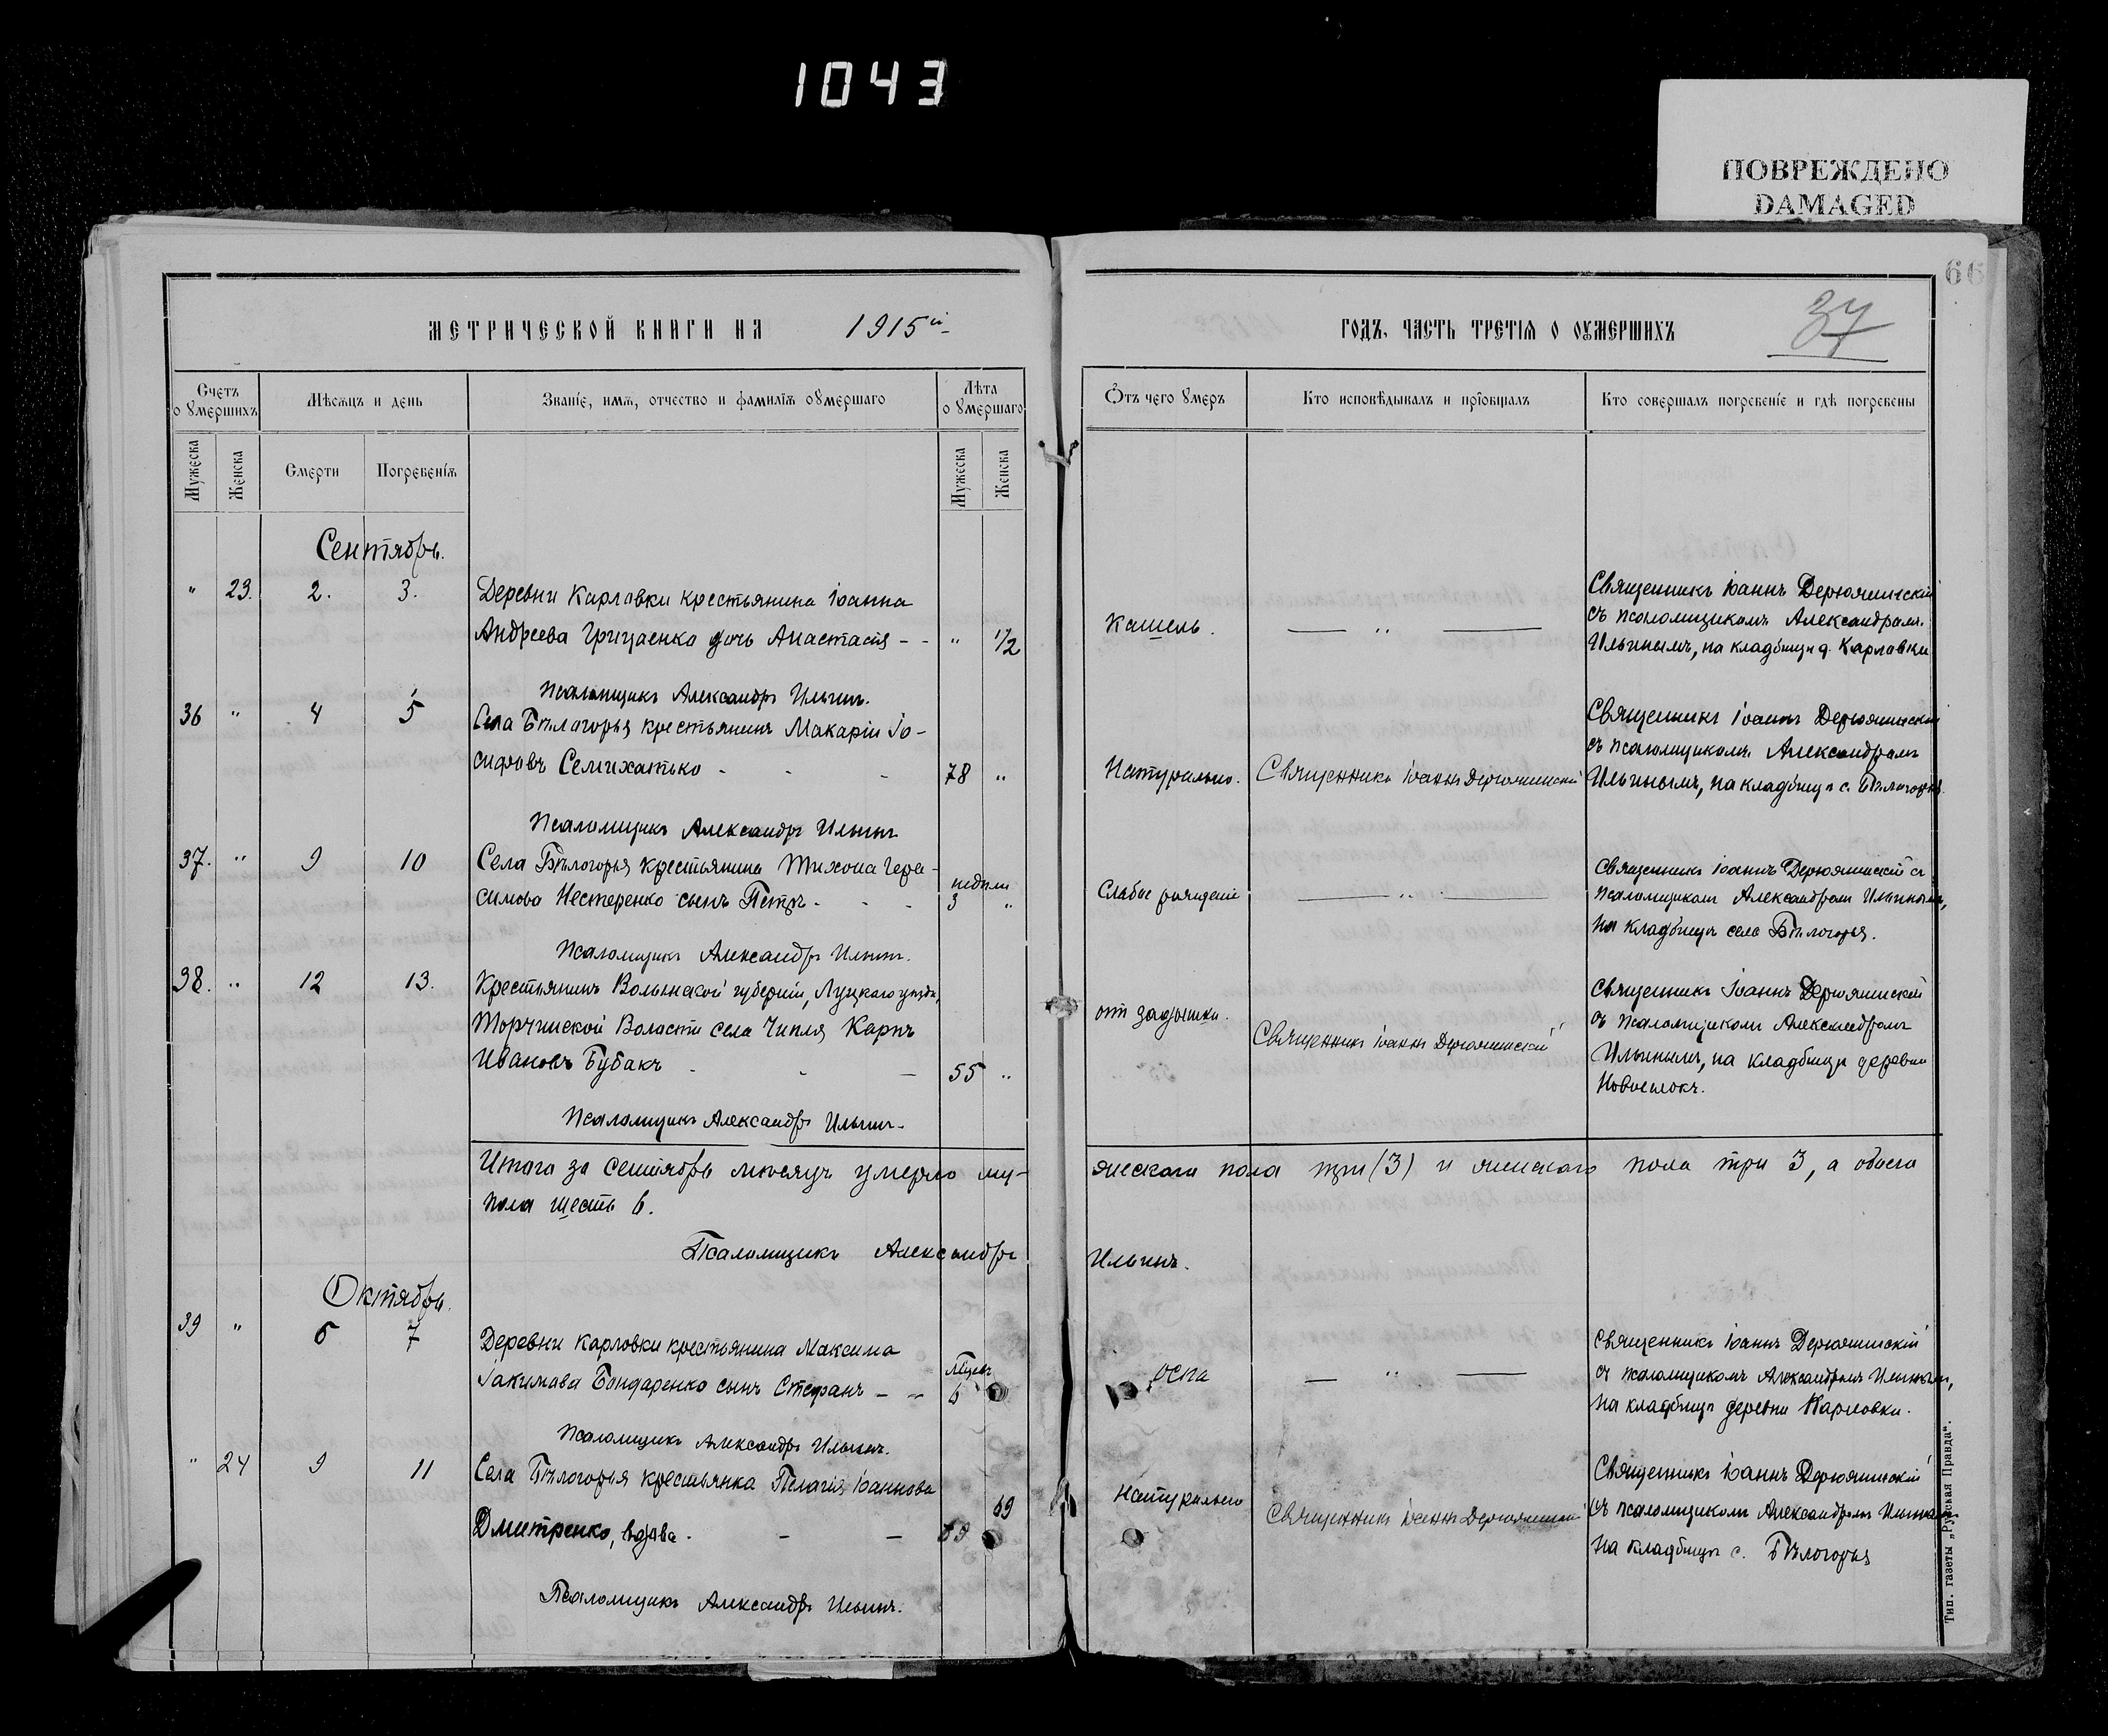 1043
ПОВРЕЖДЕНО
DAMAGED
66
37
МЕТРИЧЕСКОЙ КНИГИ НА 1915й
ГОДЪ, ЧАСТЬ ТРЕТІЯ О ОУМЕРШИХЪ
Счетъ о умершихъ
Мѣсяцъ и день
Званіе, имя, отчество и фамилія оумершаго
Лѣта о умершаго
Отъ чего умеръ
Кто исповѣдывалъ и пріобщалъ
Кто совершалъ погребеніе и гдѣ погребены
Мужеска
Женска
Смерти
Погребенія
Мужеска
Женска
Сентябрь.
" 23. 2. 3. Деревни Карловки крестьянина Іоанна
Андреева Гриценко дочь Анастасія - - " 1/2
Кашель.
— " —
Священникъ Іоаннъ Дерюжинскій
съ псаломщикомъ Александромъ
Ильинымъ, на кладбищѣ д. Карловки
Псаломщикъ Александръ Ильинъ.
36 " 4 5 Села Бѣлогорья крестьянинъ Макарій Іо-
сифовъ Семихатько - - - 78 "
Натурально.
Священникъ Іоаннъ Дерюжинскій
Священникъ Іоаннъ Дерюжинскій
съ псаломщикомъ Александромъ
Ильинымъ, на кладбищѣ с. Бѣлогорья.
Псаломщикъ Александръ Ильинъ
37. " 9 10 Села Бѣлогорья крестьянина Тихона Гера-
симова Нестеренко сынъ Петръ - - - недѣли 3 "
Слабое рожденіе
— " —
Священникъ Іоаннъ Дерюжинскій съ
псаломщикомъ Александромъ Ильинымъ,
на кладбищѣ села Бѣлогорья.
Псаломщикъ Александръ Ильинъ.
38. " 12 13. Крестьянинъ Волынской губерніи, Луцкаго уѣзда,
Торчинской Волости села Чипля Карпъ
Ивановъ Бубакъ - - — 55 "
отъ задышки.
Священникъ Іоаннъ Дерюжинскій
Священникъ Іоаннъ Дерюжинскій
съ псаломщикомъ Александромъ
Ильинымъ, на кладбищѣ деревни
Новоселокъ.
Псаломщикъ Александръ Ильинъ.
Итого за сентябрь мѣсяцъ умерло му-
жескаго пола три (3) и женскаго пола три 3, а обоего
пола шесть 6.
Псаломщикъ Александръ Ильинъ.
Октябрь.
39 " 6 7 Деревни Карловки крестьянина Максима
Іакимова Бондаренко сынъ Стефанъ - - Мѣсяц. 6
оспа
— " —
Священникъ Іоаннъ Дерюжинскій
съ псаломщикомъ Александромъ Ильинымъ,
на кладбищѣ деревни Карловки.
Псаломщикъ Александръ Ильинъ.
" 24 9 11 Села Бѣлогорья крестьянка Пелагія Іоаннова
Дмитренко, вдова - - — 69
Натурально
Священникъ Іоаннъ Дерюжинскій
Священникъ Іоаннъ Дерюжинскій
съ псаломщикомъ Александромъ Ильинымъ
на кладбищѣ с. Бѣлогорья
Псаломщикъ Александръ Ильинъ.
Тип. газеты „Русская Правда“.